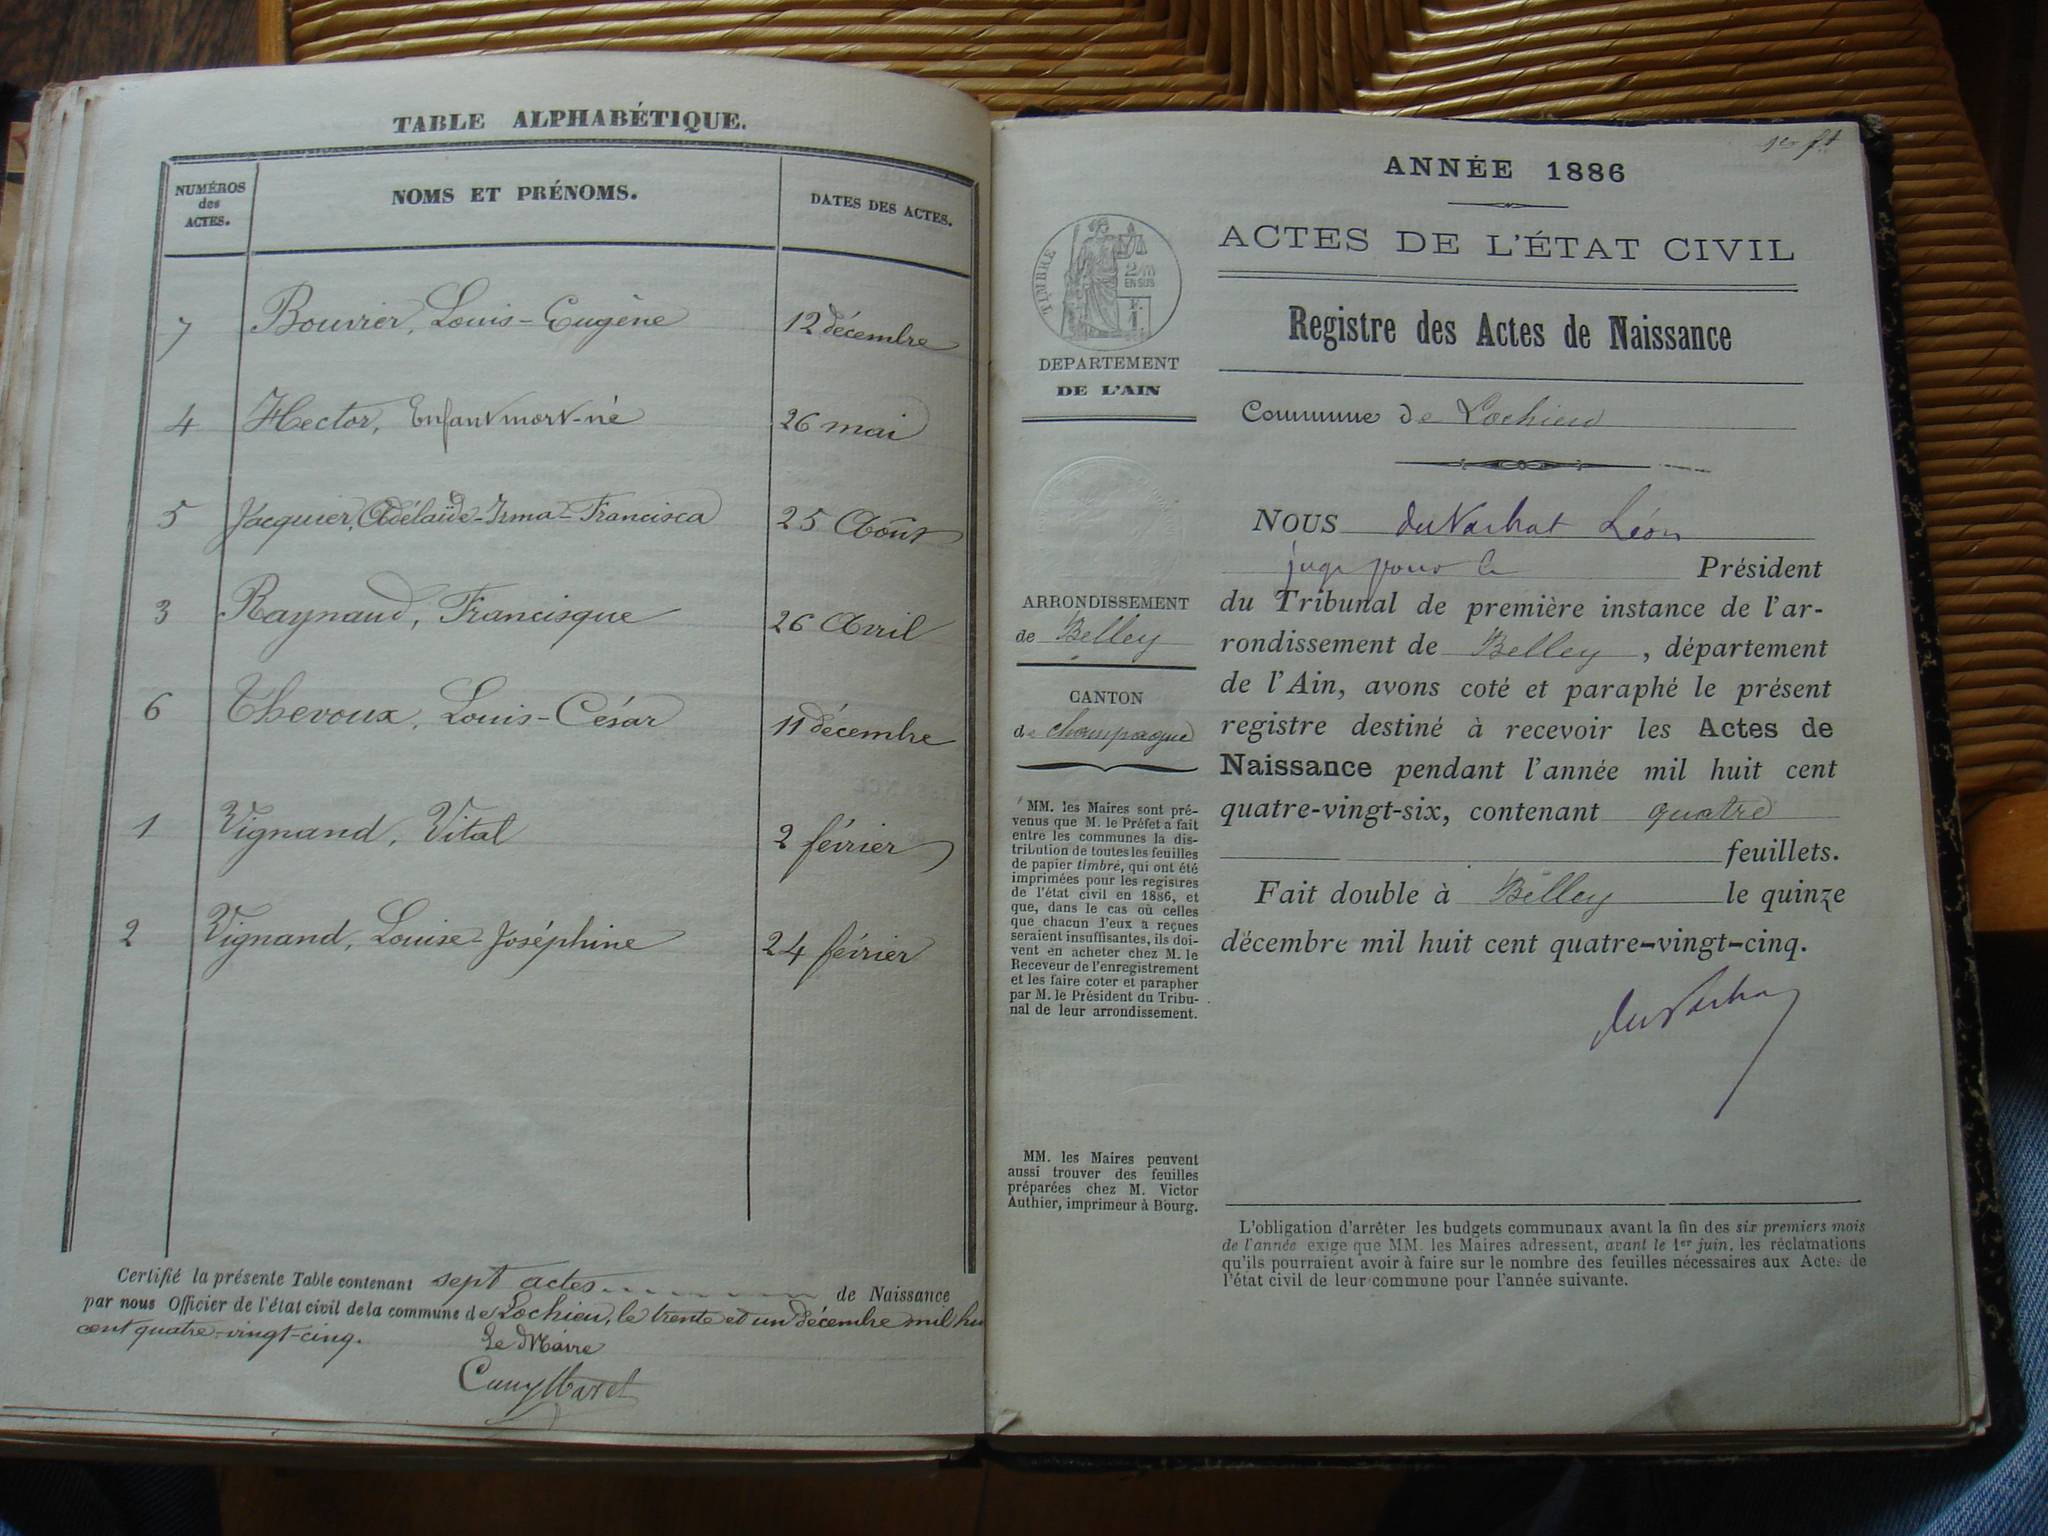 TABLE ALPHABÉTIQUE.
NUMÉROS
des
ACTES.
NOMS ET PRÉNOMS.
DATES DES ACTES.
7 Bouvier, Louis-Eugène 12 décembre
4 Hector, Enfant mort-né 26 mai
5 Jacquier, Adélaïde-Irma-Francisca 25 Août
3 Raynaud, Francisque 26 Avril
6 Thevoux, Louis-César 11 décembre
1 Vignand, Vital 2 février
2 Vignand, Louise-Joséphine 24 février
Certifié la présente Table contenant sept actes de Naissance
par nous Officier de l'état civil de la commune de Lochieu, le trente et un décembre mil hu
cent quatre-vingt-cinq.
Le Maire
1er ft
ANNÉE 1886
ACTES DE L'ÉTAT CIVIL
Registre des Actes de Naissance
Commune de Lochieu
TIMBRE
2/10
EN SUS
DEPARTEMENT
DE L'AIN
ARRONDISSEMENT
de Belley
CANTON
de Champagne
MM. les Maires sont pré-
venus que M. le Préfet a fait
entre les communes la dis-
tribution de toutes les feuilles
de papier timbré, qui ont été
imprimées pour les registres
de l'état civil en 1886, et
que, dans le cas où celles
que chacun d'eux a reçues
seraient insuffisantes, ils doi-
vent en acheter chez M. le
Receveur de l'enregistrement
et les faire coter et parapher
par M. le Président du Tribu-
nal de leur arrondissement.
MM. les Maires peuvent
aussi trouver des feuilles
préparées chez M. Victor
Authier, imprimeur à Bourg.
NOUS Léon
juge pour le Président
du Tribunal de première instance de l'ar-
rondissement de Belley, département
de l'Ain, avons coté et paraphé le présent
registre destiné à recevoir les Actes de
Naissance pendant l'année mil huit cent
quatre-vingt-six, contenant quatre
feuillets.
Fait double à Belley le quinze
décembre mil huit cent quatre-vingt-cinq.
L'obligation d'arrêter les budgets communaux avant la fin des six premiers mois
de l'année exige que MM. les Maires adressent, avant le 1er juin, les réclamations
qu'ils pourraient avoir à faire sur le nombre des feuilles nécessaires aux Actes de
l'état civil de leur commune pour l'année suivante.